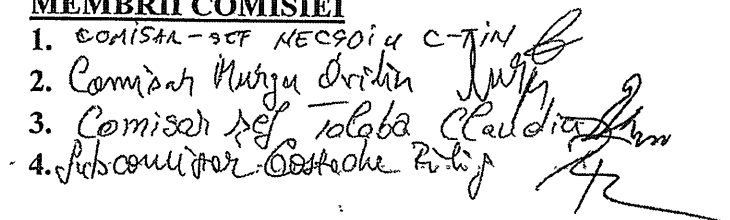 MEMBRII COMISIEI
1. COMISAR-SEF NECSOIU C-TIN
2. Comisar Murgu Ovidiu
3. Comisar șef Talaba Claudiu
4. Subcomisar Costache